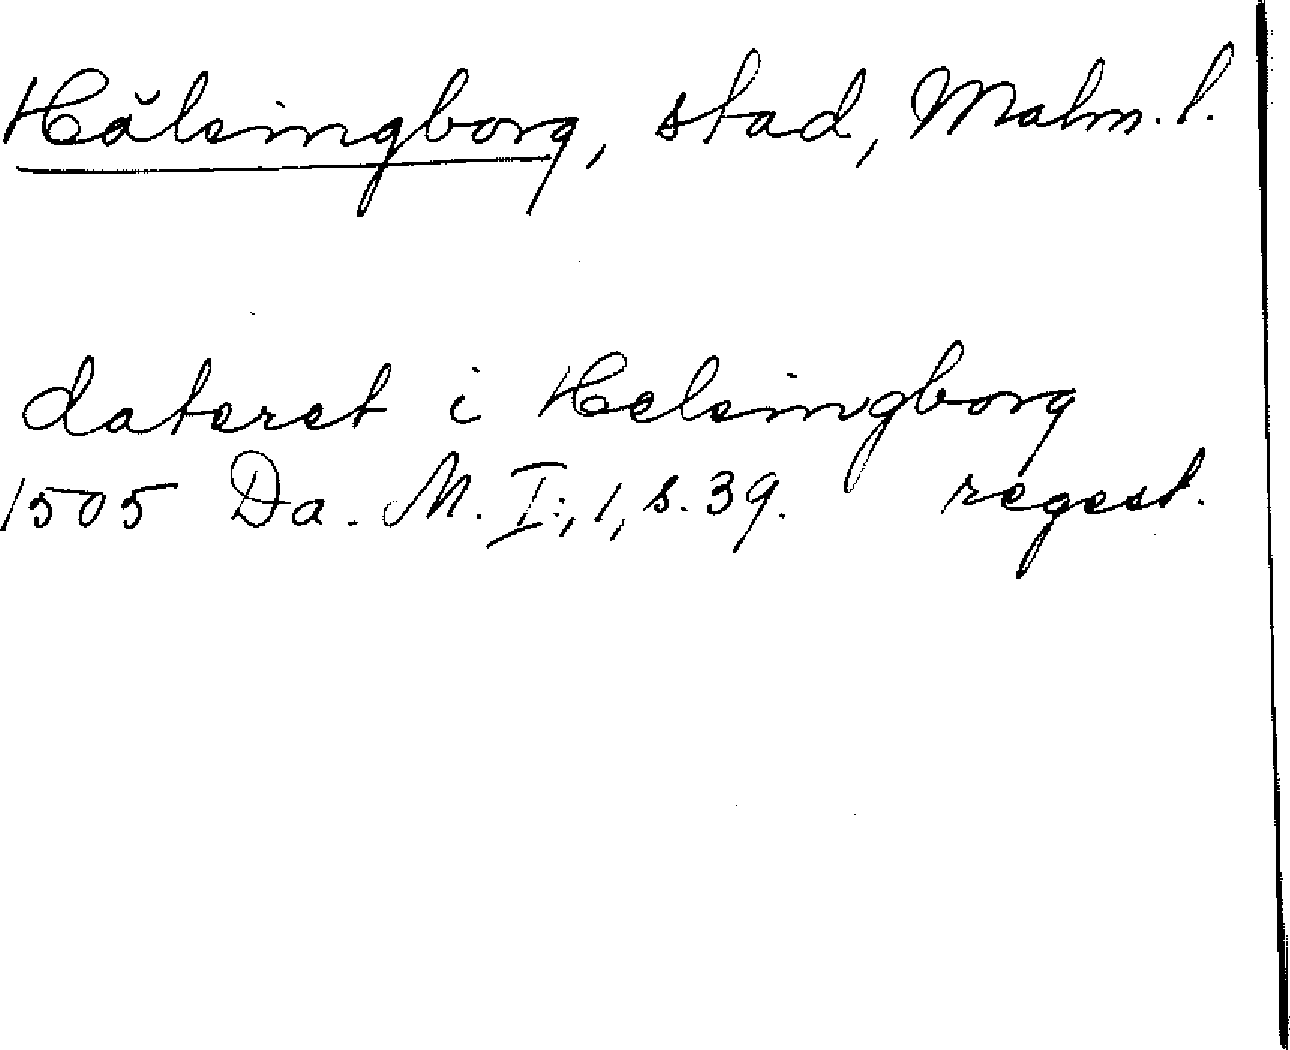 Hälsingborg, stad, Malm. l.
dateret i Helsingborg
1505 Da. M. I:, 1, s. 39. regest.